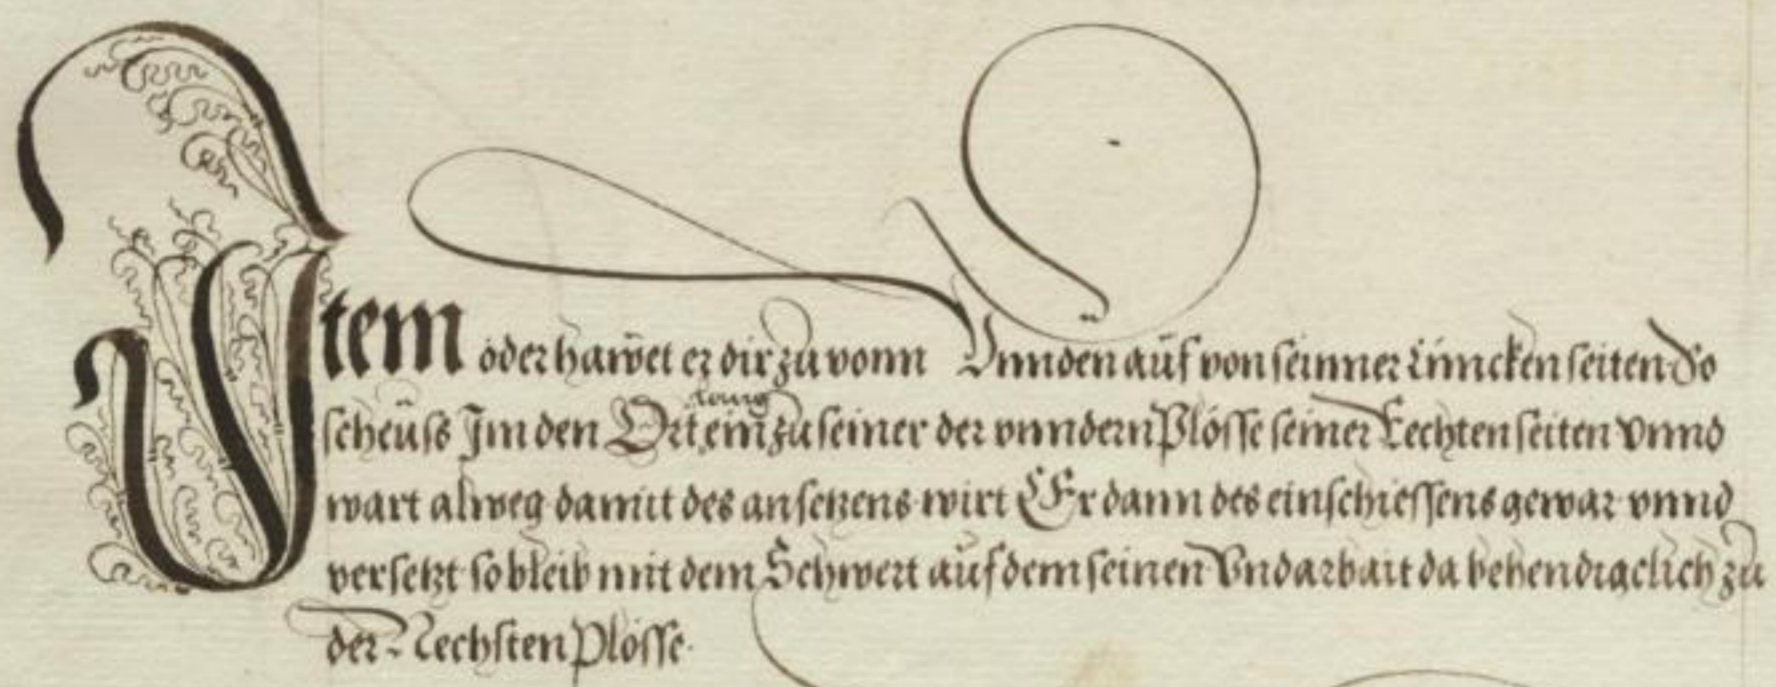 Item oder hawet er dir zu vonn Vnnden auf von seinner Linncken seiten So
scheuss Im den Ort lanng ein zu seiner der vnndern Plösse seiner Rechten seiten Vnnd
wart alweg damit des ansetzens wirt Er dann des einschiessens gewar vnnd
versetzt so bleib mit dem Schwert auf dem seinen Vnd arbait da behendigclich zu
der Nechsten Plösse.